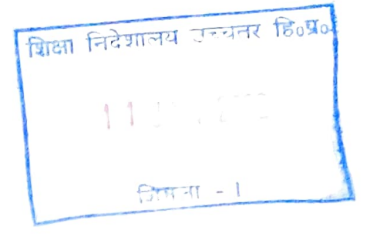 शिक्षा निदेशालय उच्चतर हि०प्र०
11
शिमला - 1